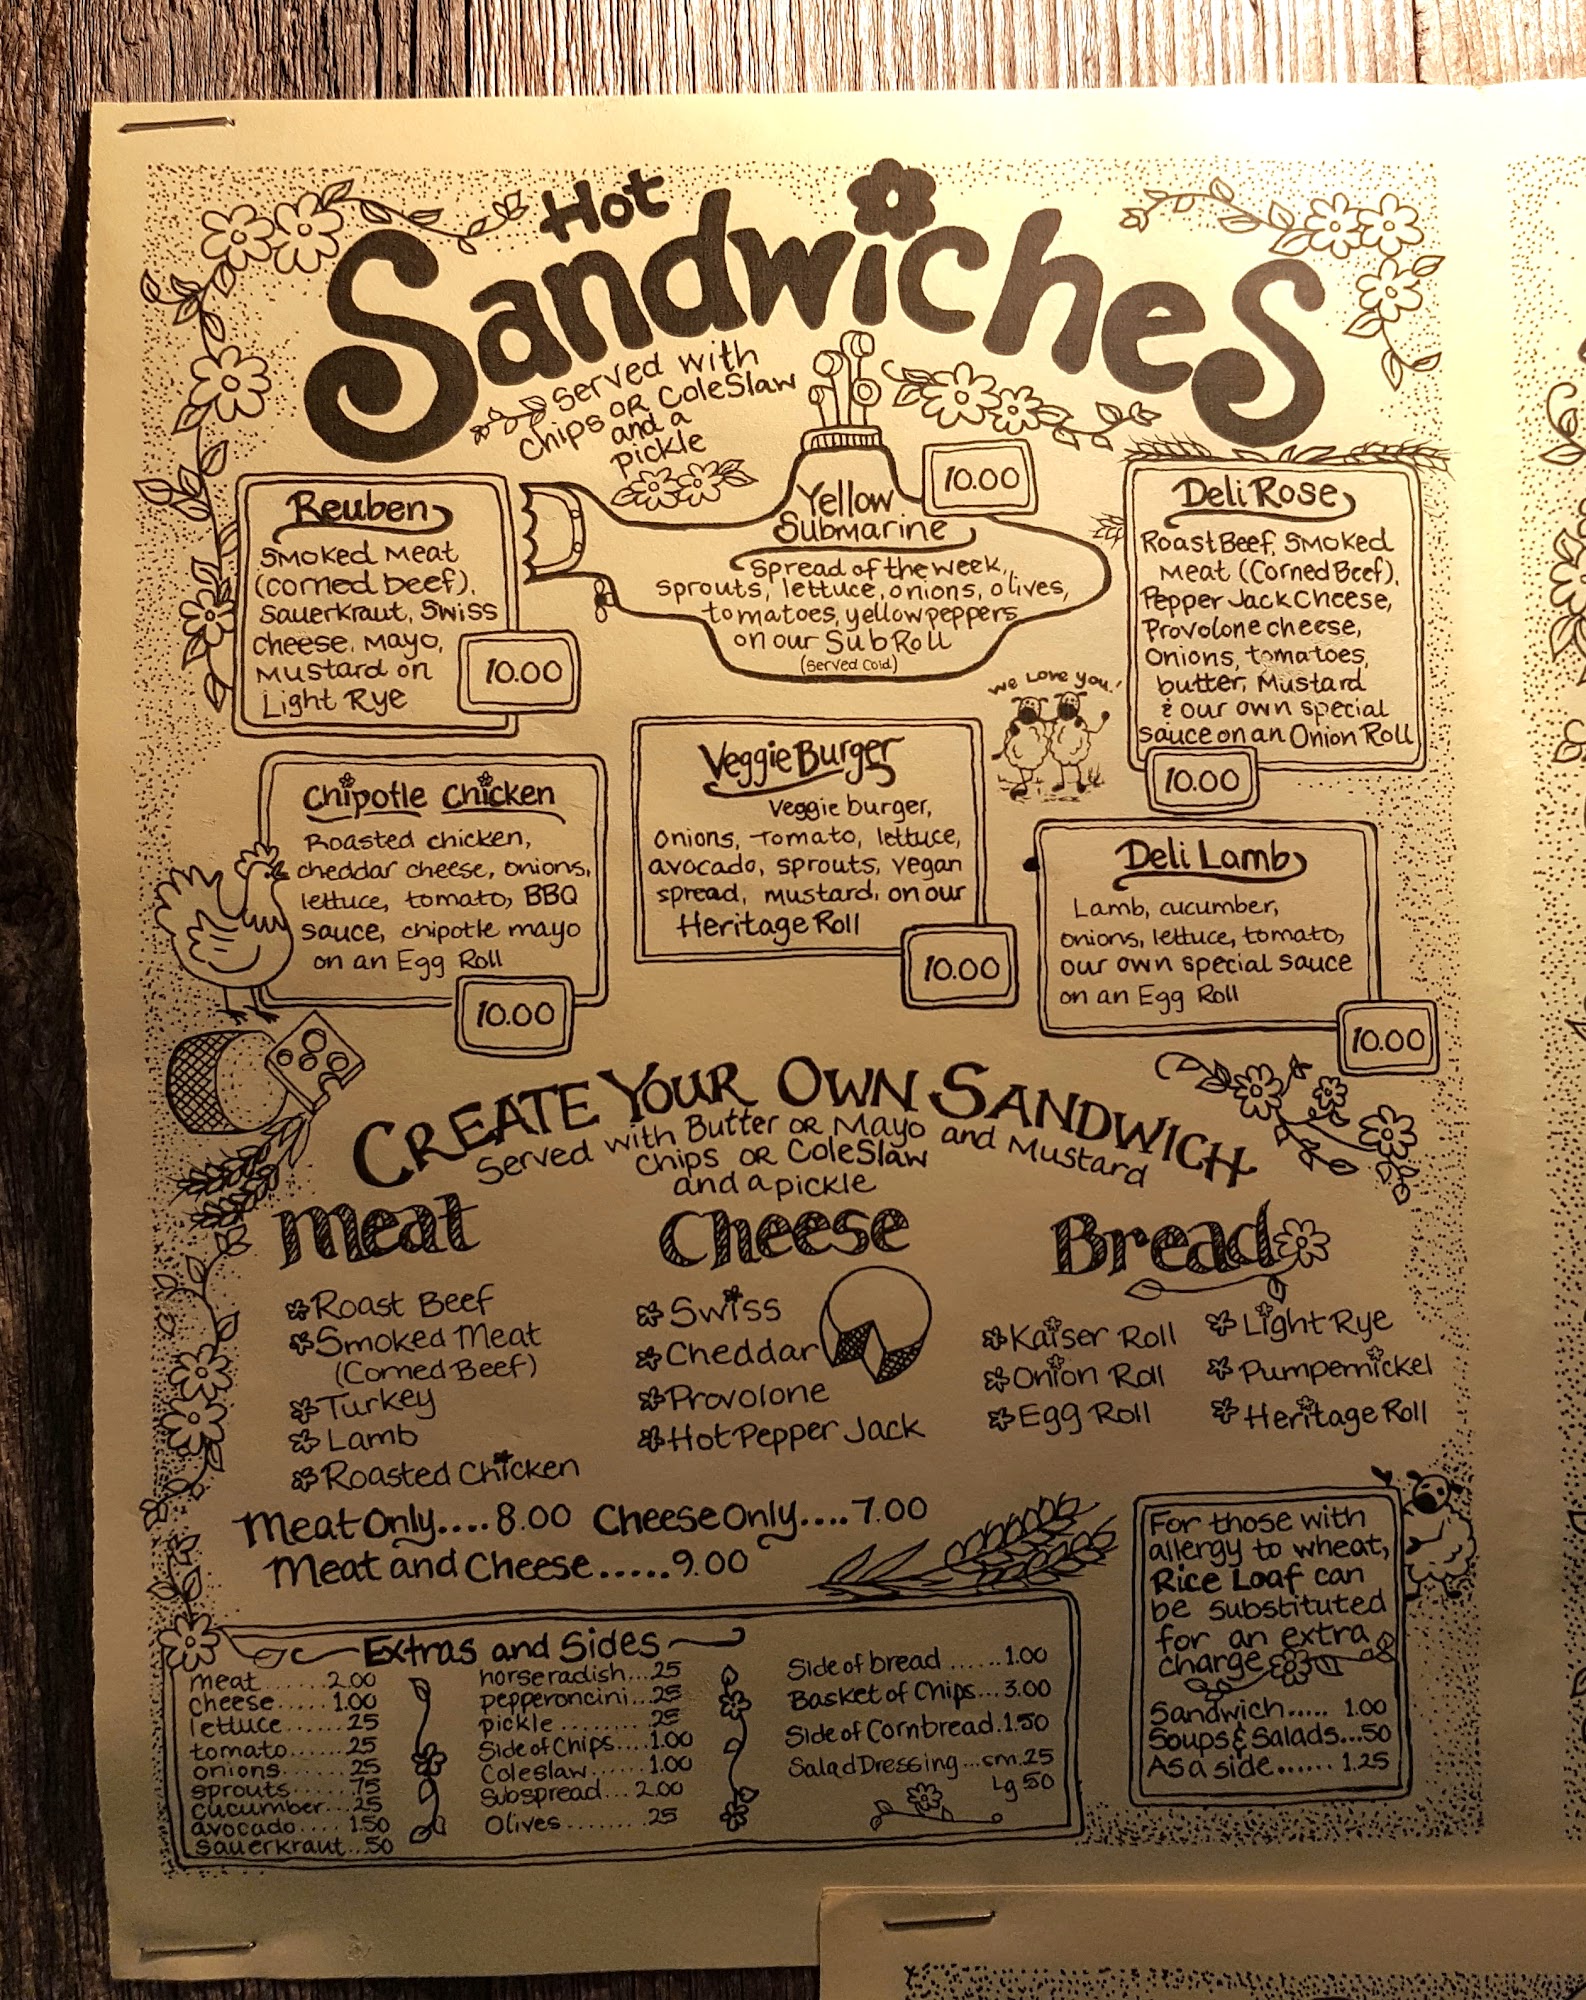 Hot
Sandwiches
served with
chips OR ColeSlaw
and a
pickle
Reuben
Smoked Meat
(corned beef),
Sauerkraut, Swiss
Cheese, Mayo,
Mustard on
Light Rye
10.00
Yellow
Submarine
10.00
Spread of the week,
sprouts, lettuce, onions, olives,
tomatoes, yellow peppers
on our Sub Roll
(Served Cold)
Deli Rose
Roast Beef, Smoked
Meat (Corned Beef),
Pepper Jack Cheese,
Provolone cheese,
Onions, tomatoes,
butter, Mustard
& our own special
sauce on an Onion Roll
10.00
We Love you!
Chipotle Chicken
Roasted chicken,
cheddar cheese, onions,
lettuce, tomato, BBQ
sauce, chipotle mayo
on an Egg Roll
10.00
Veggie Burger
Veggie burger,
onions, Tomato, lettuce,
avocado, sprouts, vegan
spread, mustard, on our
Heritage Roll
10.00
Deli Lamb
Lamb, cucumber,
onions, lettuce, tomato,
our own special sauce
on an Egg Roll
10.00
CREATE YOUR OWN SANDWICH
Served with Butter OR Mayo and Mustard
Chips OR ColeSlaw
and a pickle
Meat
Roast Beef
Smoked Meat
(Corned Beef)
Turkey
Lamb
Roasted Chicken
Cheese
Swiss
Cheddar
Provolone
Hot Pepper Jack
Bread
Kaiser Roll
Onion Roll
Egg Roll
Light Rye
Pumpernickel
Heritage Roll
Meat Only....8.00 Cheese Only....7.00
Meat and Cheese.....9.00
Extras and Sides
meat......2.00
cheese.....1.00
lettuce.......25
tomato......25
onions.......25
sprouts......75
cucumber...25
avocado....1.50
sauerkraut...50
horseradish...25
pepperoncini...25
pickle........25
Side of Chips....1.00
Coleslaw......1.00
Subspread...2.00
Olives........25
Side of bread......1.00
Basket of Chips...3.00
Side of Cornbread.1.50
Salad Dressing...sm.25
Lg 50
For those with
allergy to wheat,
Rice Loaf can
be substituted
for an extra
charge
Sandwich..... 1.00
Soups & Salads...50
As a side....... 1.25